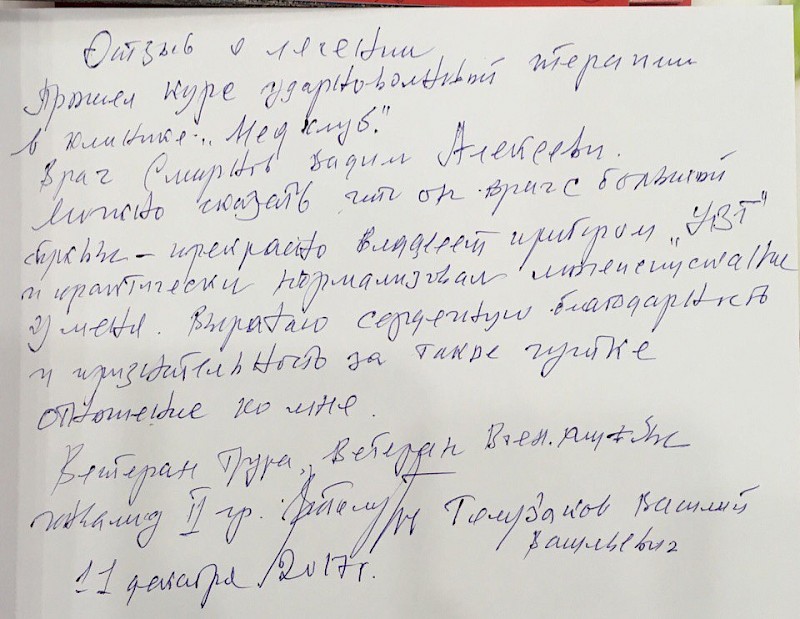 Отзыв о лечении
Прошел курс ударноволновой терапии
в клинике „Мед клуб."
Врач Смирнов Вадим Алексеевич.
Можно сказать что он врач с большой
буквы – прекрасно владеет прибором „УВТ"
и практически нормализовал
у меня. Выражаю сердечную благодарность
и признательность за такое чуткое
отношение ко мне.
Ветеран Труда, Ветеран Воен. службы
инвалид II гр. Василий
Васильевич
11 декабря 2017г.